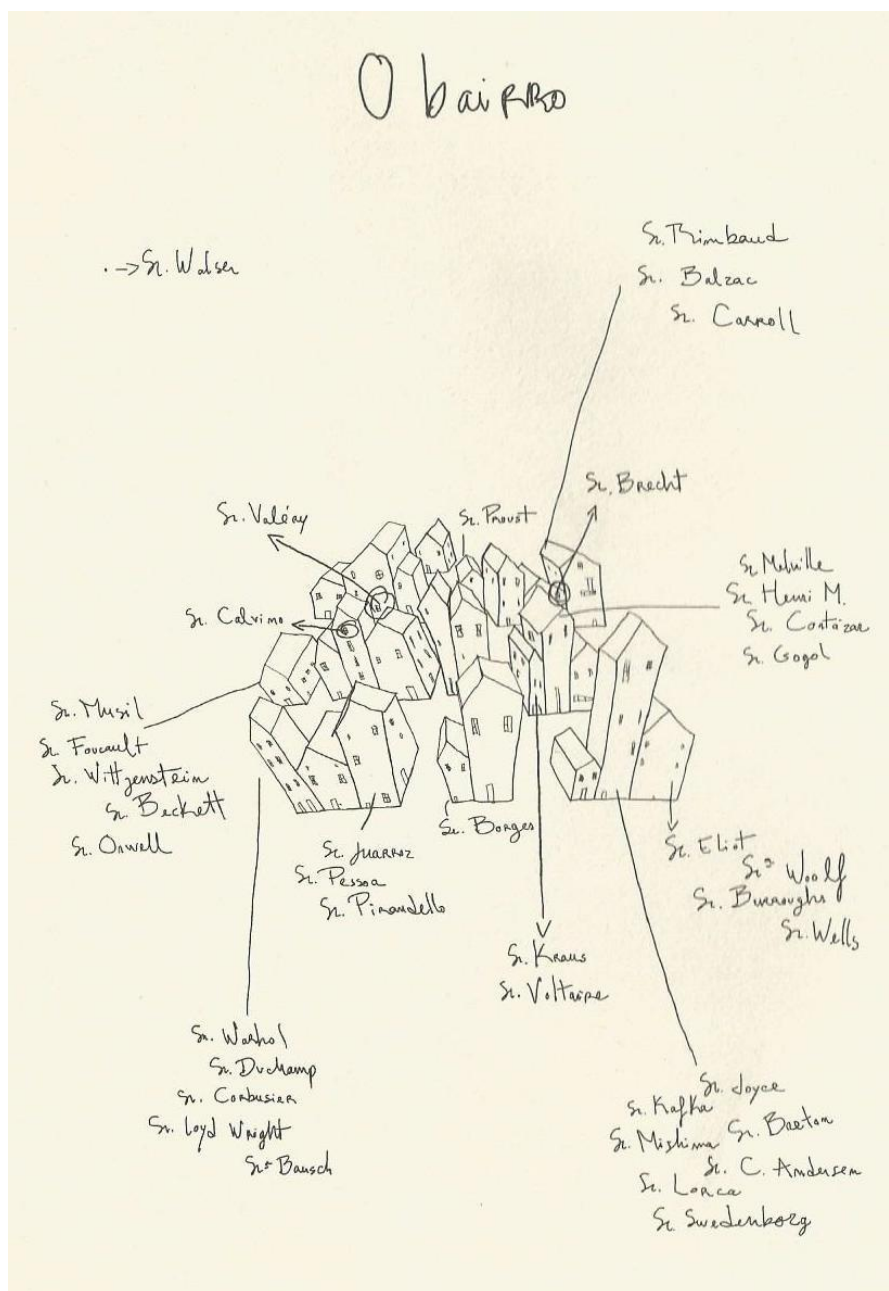 O bairro
Sr. Rimbaud
Sr. Balzac
Sr. Carroll
.-> Sr. Walser
Sr. Brecht
Sr. Valéry
Sr. Proust
Sr. Calvino
Sr. Melville
Sr. Henri M.
Sr. Cortázar
Sr. Gogol
Sr. Musil
Sr. Foucault
Sr. Wittgenstein
Sr. Beckett
Sr. Orwell
Sr. Juarroz
Sr. Pessoa
Sr. Pirandello
Sr. Borges
Sr. Eliot
Srª Woolf
Sr. Burroughs
Sr. Wells
Sr. Kraus
Sr. Voltaire
Sr. Warhol
Sr. Duchamp
Sr. Corbusier
Sr. Loyd Wright
Srª Bausch
Sr. Joyce
Sr. Kafka
Sr. Mishima
Sr. Breton
Sr. C. Andersen
Sr. Lorca
Sr. Swedenborg